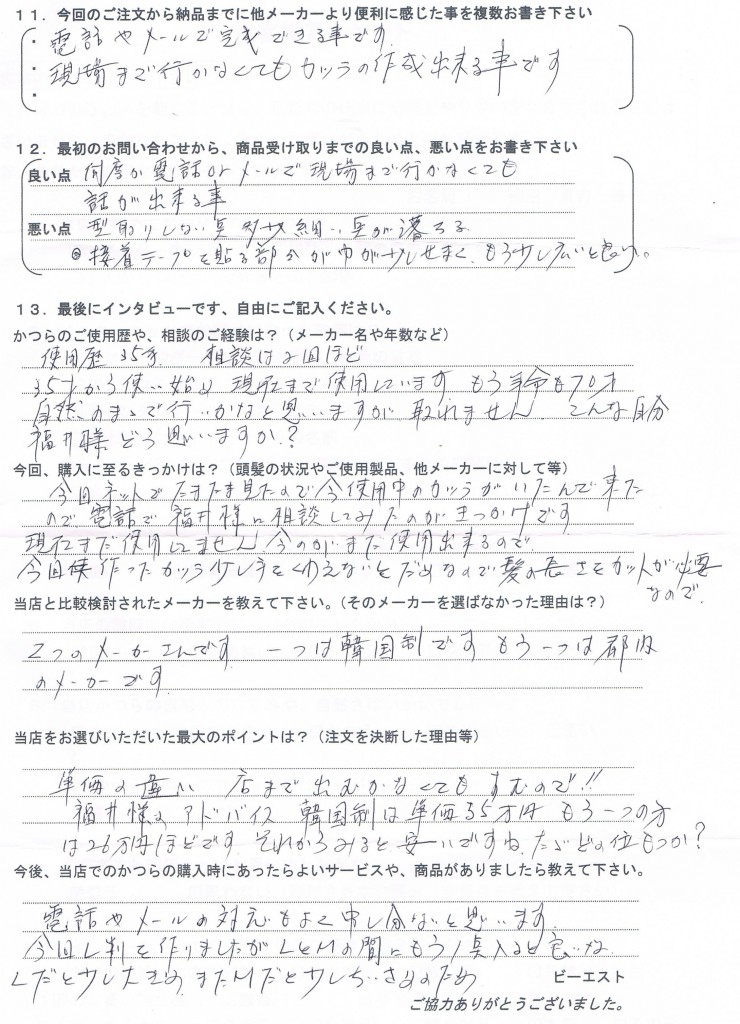 11．今回のご注文から納品までに他メーカーより便利に感じた事を複数お書き下さい
・電話やメールで完成できる事です
・現場まで行かなくてもカツラの作成出来る事です
・
12．最初のお問い合わせから、商品受け取りまでの良い点、悪い点をお書き下さい
良い点 何度か電話orメールで現場まで行かなくても
話が出来る事
悪い点 型取りしない点 多少細い点が落ちる
◎接着テープを貼る部分が巾が少しせまく、もう少し広いと良い。
13．最後にインタビューです、自由にご記入ください。
かつらのご使用歴や、相談のご経験は？（メーカー名や年数など）
使用歴35年 相談は2回ほど
35才から使い始め現在まで使用しています もう年令も70才
自然のままで行いかなと思いますが 取れません こんな自分
福井様どう思いますか？
今回、購入に至るきっかけは？（頭髪の状況やご使用製品、他メーカーに対して等）
今回ネットでたまたま見たので今使用中のカツラがいたんで来た
ので電話で福井様に相談してみたのがきっかけです
現在まだ使用してません 今のがまだ使用出来るので
今回 作ったカツラ少し手をくわえないとだめなので髪の長さをカットが必要
なので
当店と比較検討されたメーカーを教えて下さい。（そのメーカーを選ばなかった理由は？）
2つのメーカーさんです 一つは韓国制です もう一つは都内
のメーカーです
当店をお選びいただいた最大のポイントは？（注文を決断した理由等）
単価の違い 店まで出むかなくてもすむので!!
福井様のアドバイス 韓国制は単価35万円 もう一つの方
は26万円ほどです。それからみると安いですね、ただどの位もつか？
今後、当店でのかつらの購入時にあったらよいサービスや、商品がありましたら教えて下さい。
電話やメールの対応もよく申し分ないと思います
今回L判を作りましたがLとMの間にもう1点入ると良いな
Lだと少し大きめ、またMだと少しちいさめのため
ビーエスト
ご協力ありがとうございました。